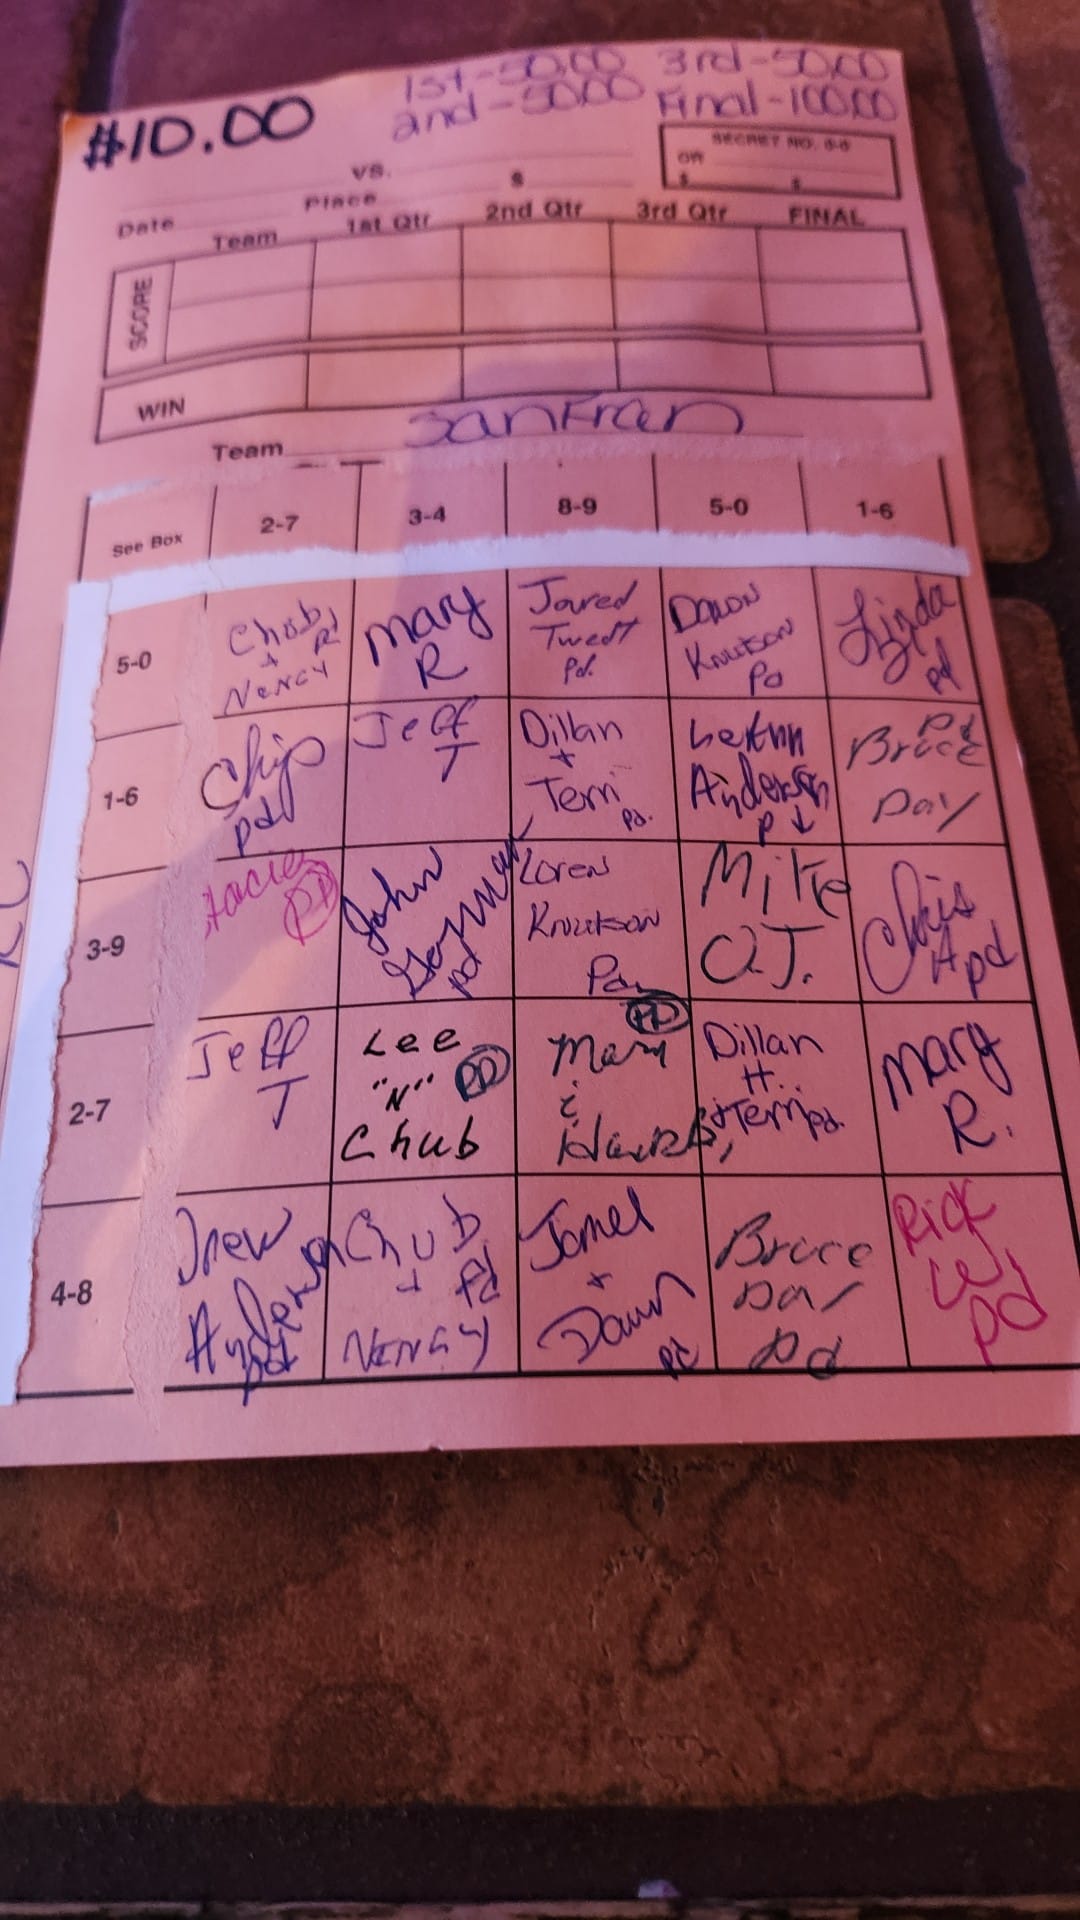 $10.00
1st-50.00 3rd-50.00
2nd-50.00 Final-100.00
SECRET NO. 0-0
OR
$ $
vs. $
Date Place
Team 1st Qtr 2nd Qtr 3rd Qtr FINAL
SCORE
WIN
Team San Fran
See Box 2-7 3-4 8-9 5-0 1-6
5-0
Chub Pd
+
Nancy
Mary
R
Jared
Twedt
Pd.
Knutson
Pd
Linda
pd
1-6
Chip
pd
Jeff
T
Dillan
+
Terri
pd.
LeAnn
Anderson
P ↓
Pd
Bruce
Day
3-9
Stacie
PD
John
pd
Loren
Knutson
Pd.
Mike
O.T.
Chris
H pd
2-7
Jeff
T
Lee
"N" PD
Chub
PD
Mary
&
Dillan
H.
+Terri pd.
Mary
R.
4-8
Drew
Anderson
pd
Chub
+ Pd
Nancy
Jamel
+
Dawn
pd
Bruce
Day
Pd
Rick
W
pd
KC